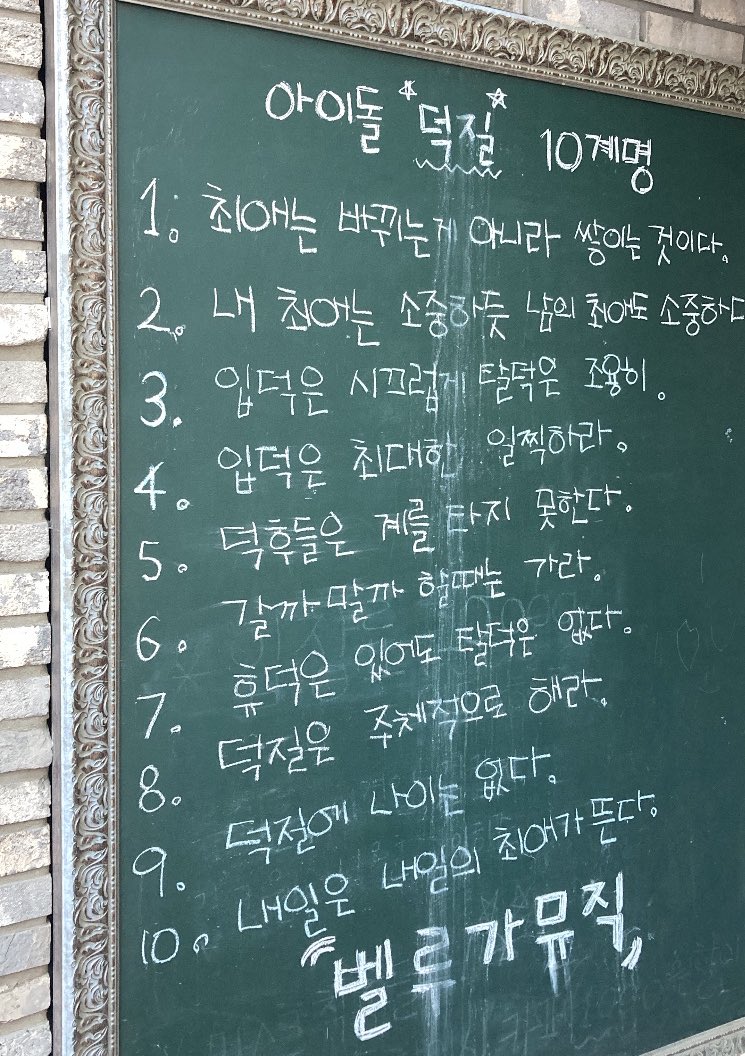 아이돌 "덕질" 10계명
1. 최애는 바뀌는게 아니라 쌓이는 것이다.
2. 내 최애는 소중하듯 남의 최애도 소중하다
3. 입덕은 시끄럽게 탈덕은 조용히.
4. 입덕은 최대한 일찍하라.
5. 덕후들은 계를 타지 못한다.
6. 갈까 말까 할때는 가라.
7. 휴덕은 있어도 탈덕은 없다.
8. 덕질은 주체적으로 해라.
9. 덕질에 나이는 없다.
10. 내일은 내일의 최애가 뜬다.
"벨루가뮤직"